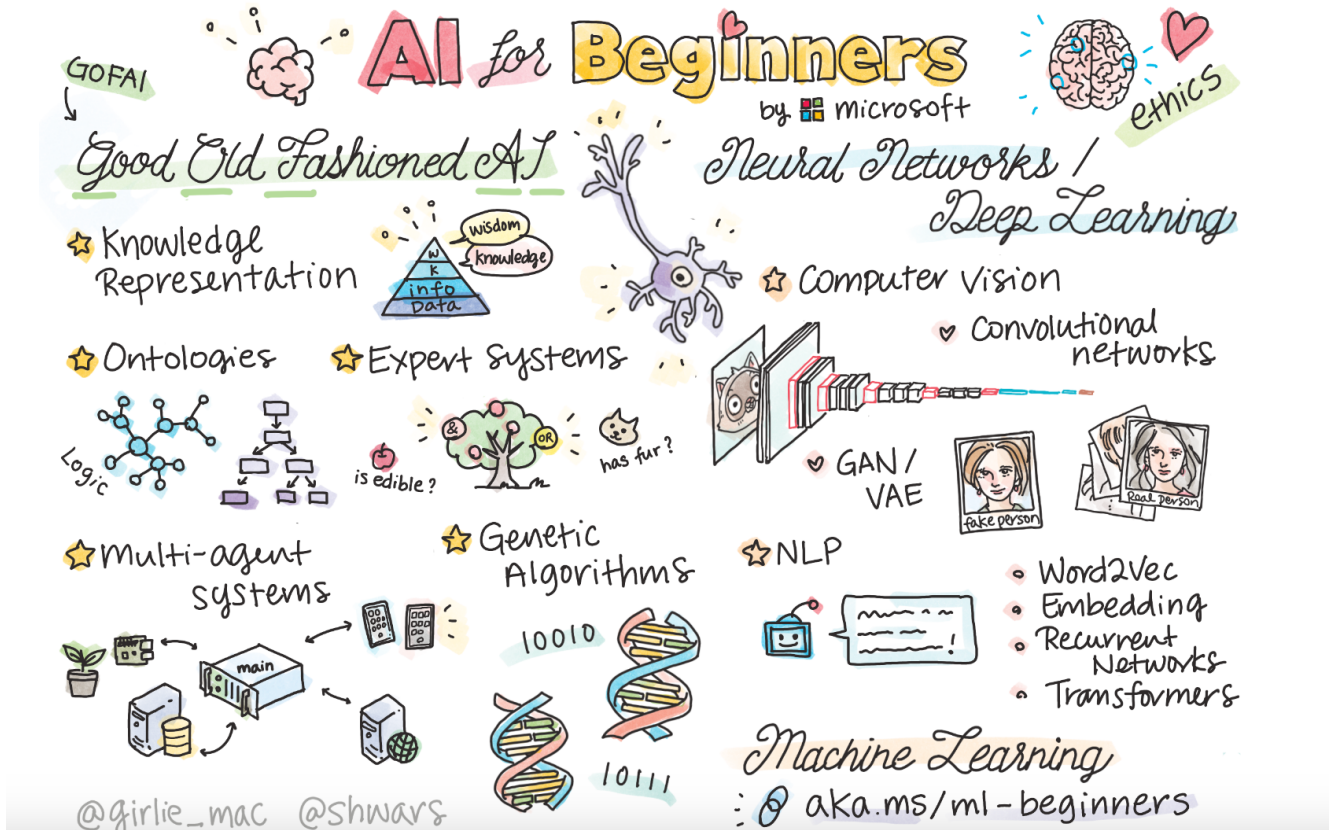 AI for Beginners
by microsoft
ethics
GOFAI
Good Old Fashioned AI
Knowledge
Representation
wisdom
knowledge
W
K
info
Data
Ontologies
Logic
Expert systems
&
OR
is edible?
has fur?
Multi-agent
systems
main
Genetic
Algorithms
10010
10111
Neural Networks /
Deep Learning
Computer Vision
Convolutional
networks
GAN /
VAE
fake person
Real person
NLP
!
Word2Vec
Embedding
Recurrent
Networks
Transformers
Machine Learning
: aka.ms/ml-beginners
@girlie_mac @shwars